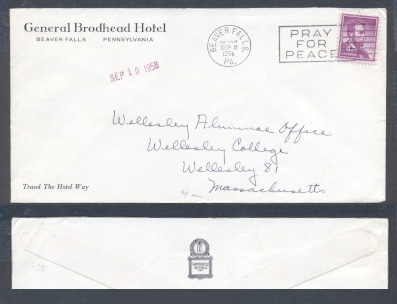 General Brodhead Hotel
BEAVER FALLS PENNSYLVANIA
SEP 10 1958
BEAVER FALLS,
SEP 8
1958
PA.
PRAY
FOR
PEACE
Wellesley Alumnae Office
Wellesley College
Wellesley 81
Massachusetts
Travel The Hotel Way